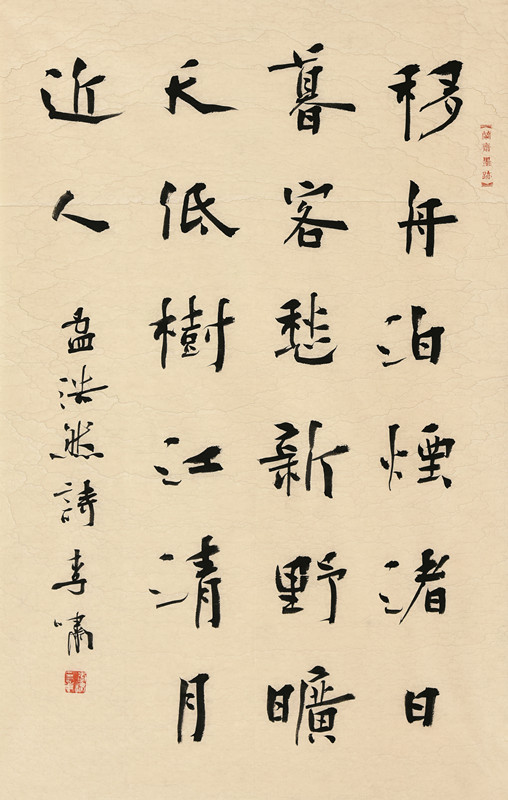 移舟泊煙渚日
暮客愁新野曠
天低樹江清月
近人
孟浩然詩李嘯